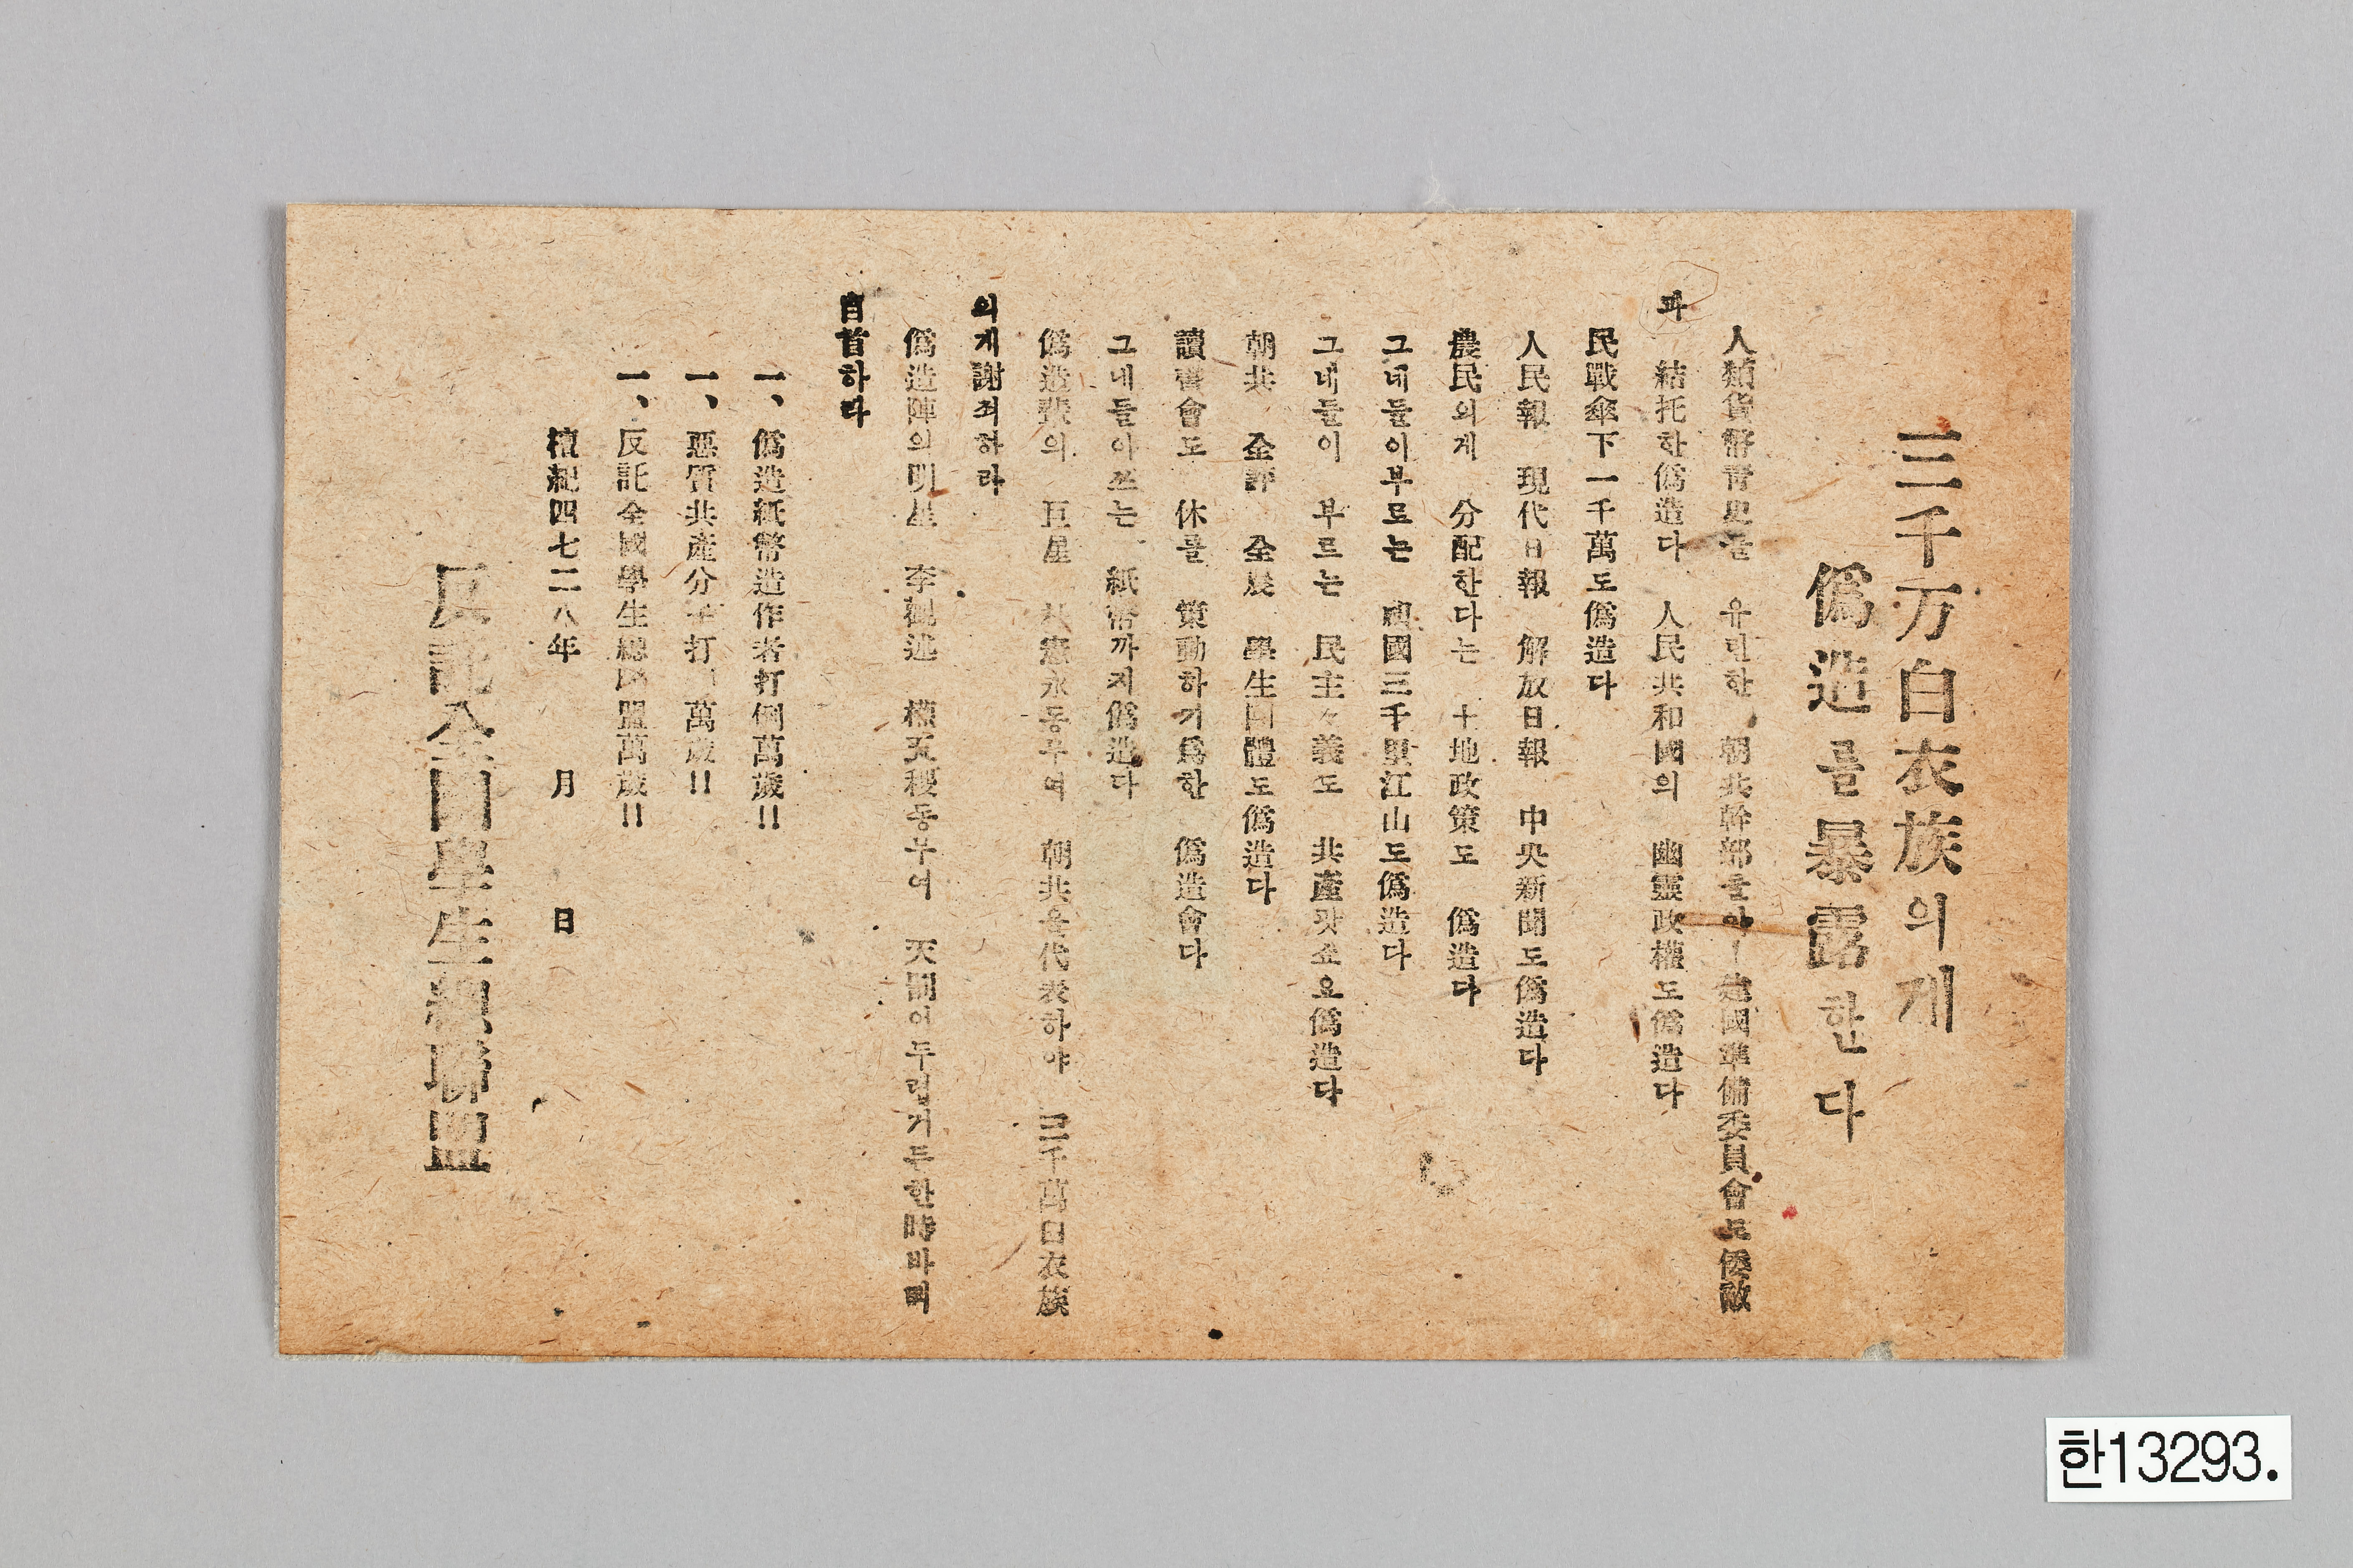 三千万白衣族의게
僞造를暴露한다
人類貨幣靑史를 유린한 朝共幹部들아ー建國準備委員會도倭敵
과 結托한僞造다 人民共和國의 幽靈政權도僞造다
民戰傘下一千萬도僞造다
人民報 現代日報 解放日報 中央新聞도僞造다
農民의게 分配한다는 土地政策도 僞造다
그네들이부르는 祖國三千里江山도僞造다
그네들이 부르는 民主々義도 共産팟쇼오僞造다
朝共 全評 全農 學生團體도僞造다
讀書會도 休를 策動하기爲한 僞造會다
그네들이쓰는 紙幣까지僞造다
僞造輩의 巨星 朴憲永동무여 朝共을代表하야 三千萬白衣族
의게謝죄하라
僞造陣의明星 李觀述 權五稷동무여 天罰이두렵거든한時바삐
自首하라
一、僞造紙幣造作者打倒萬歲!!
一、惡質共產分子打 萬歲!!
一、反託全國學生總 盟萬歲!!
檀紀四七二八年 月 日
反託全國學生總聯盟
한13293.